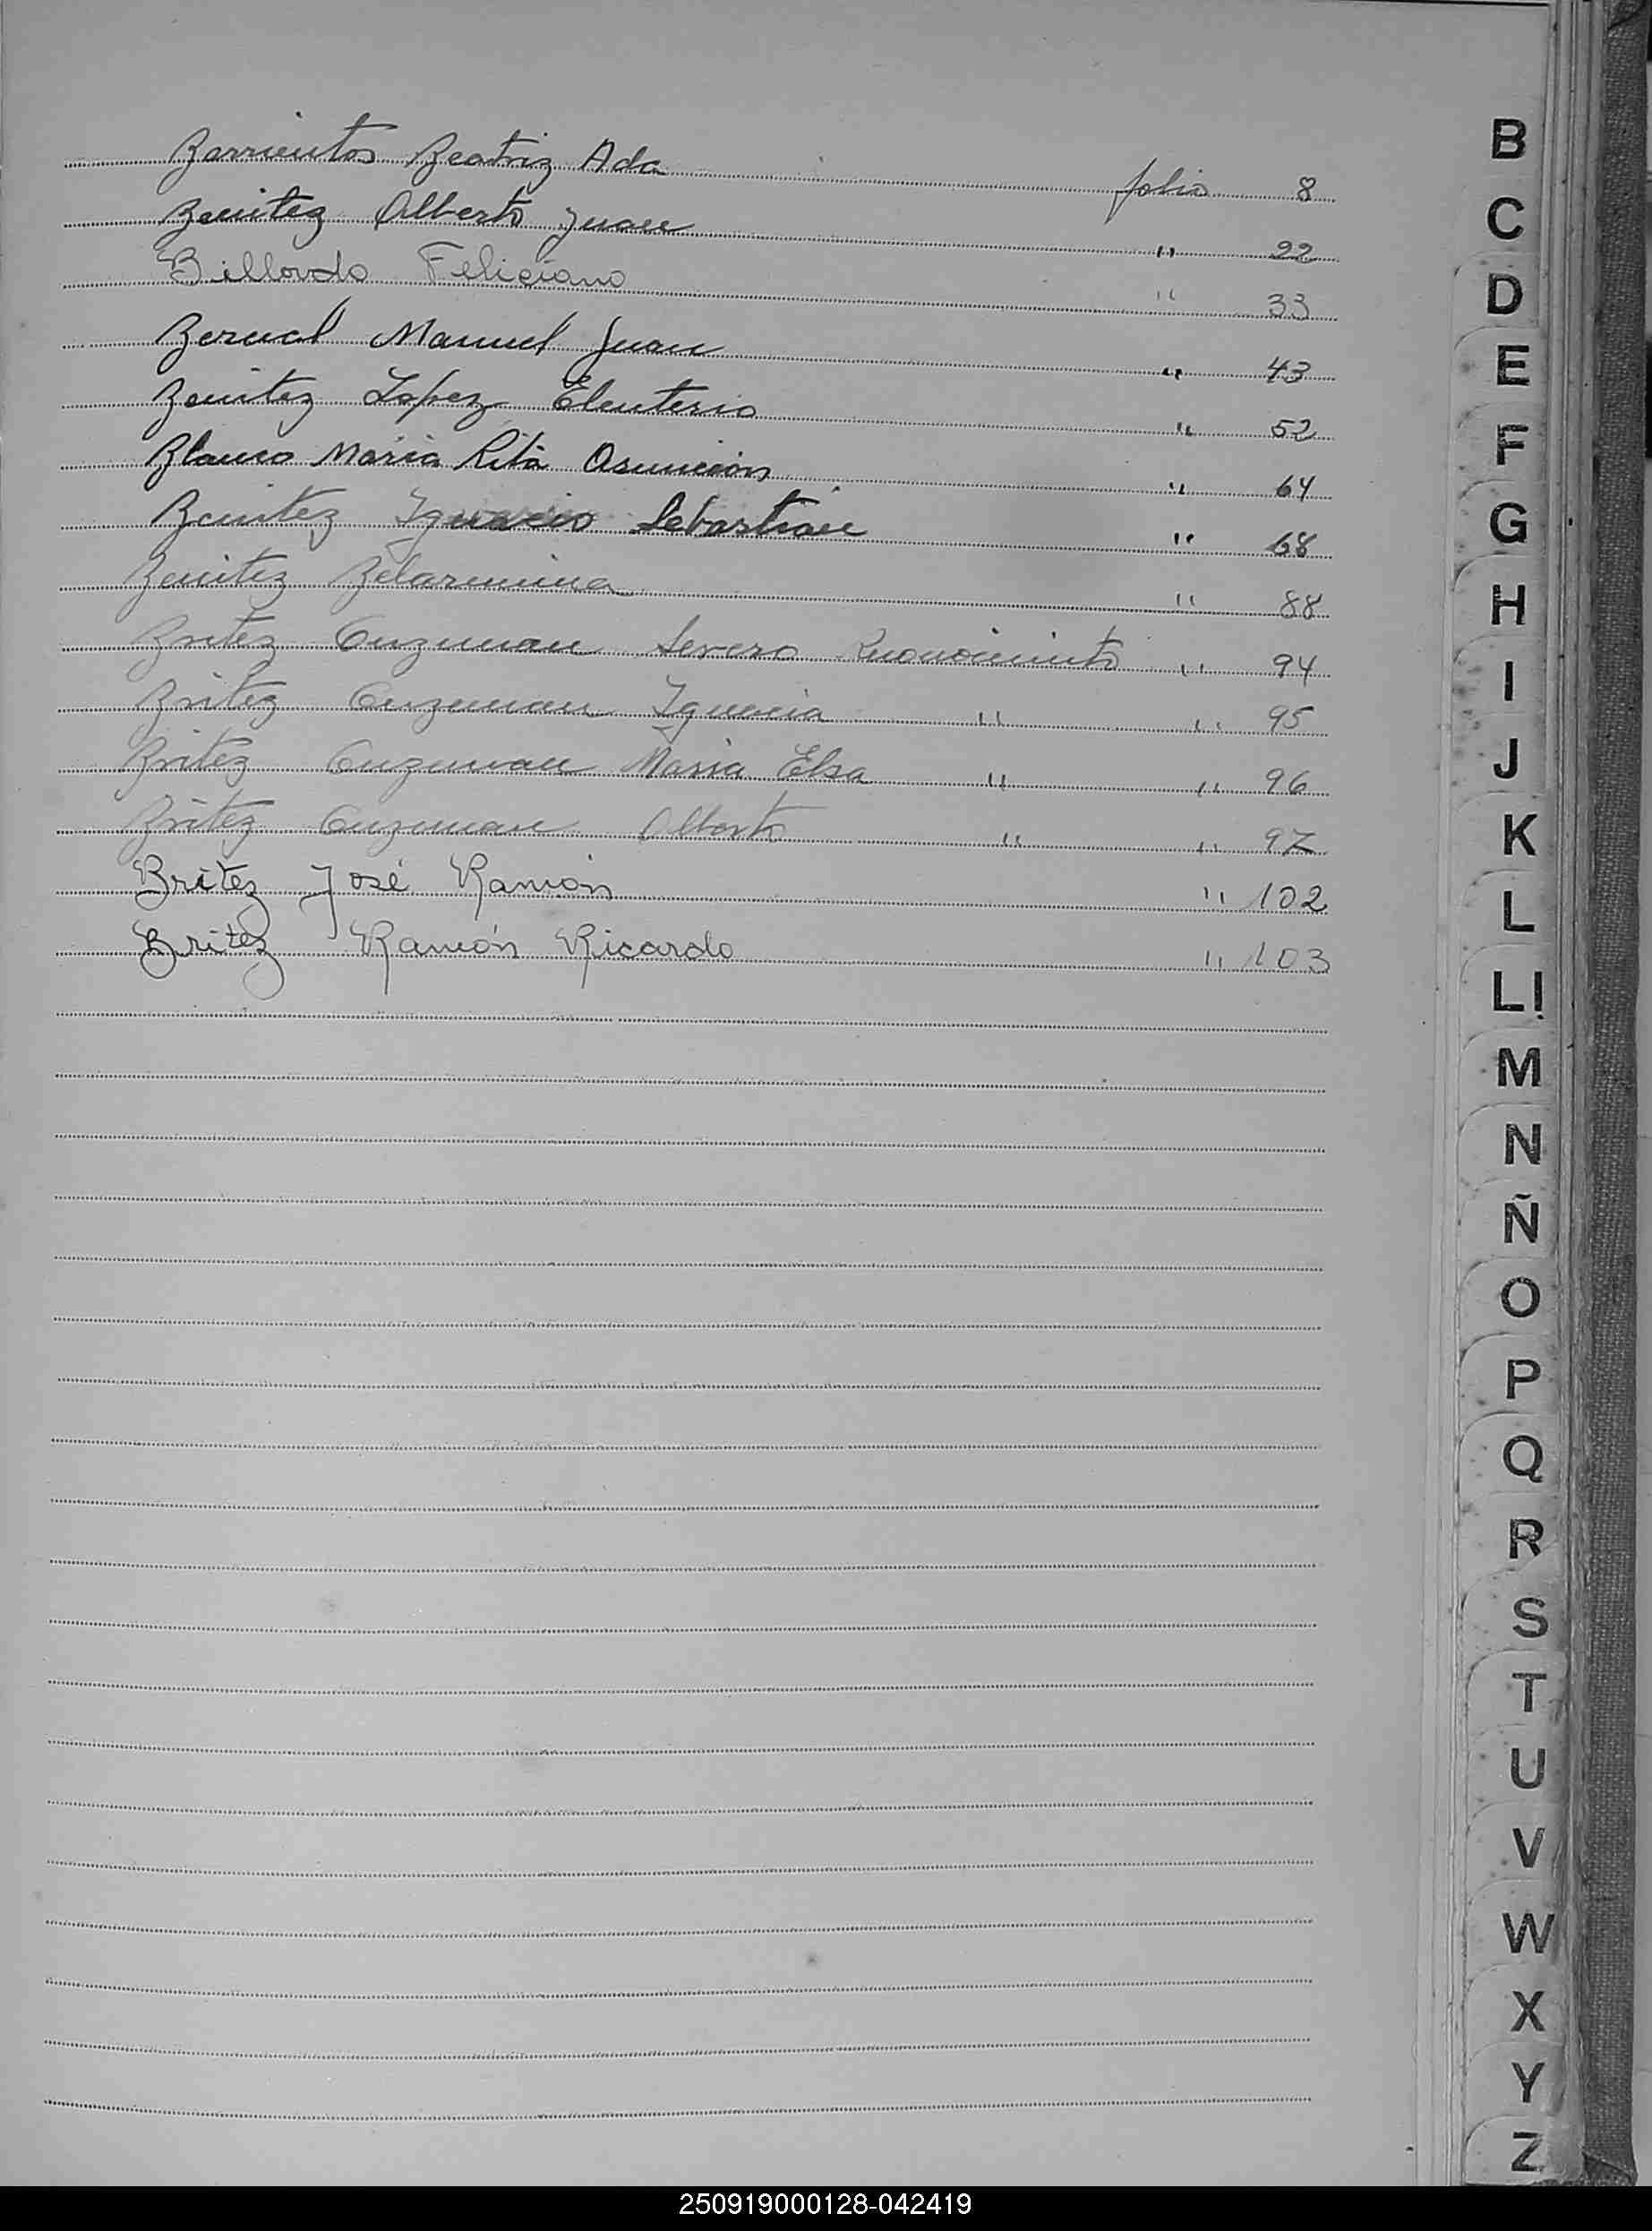 Barrientos Beatriz Ada folio 8
Benitez Alberto Juan " 22
Billordo Feliciano " 33
Bernal Manuel Juan " 43
Benitez Lopez Eleuterio " 52
Blanco Maria Rita Asunción " 64
Benitez Ignacio Sebastián " 68
Benitez Belarmina " 88
Britez Guzman Severo Reconocimiento " 94
Britez Guzman Ignacia " " 95
Britez Guzman Maria Elsa " " 96
Britez Guzman Alberto " " 97
Britez José Ramón " 102
Britez Ramón Ricardo " 103
B
C
D
E
F
G
H
I
J
K
L
LL
M
N
Ñ
O
P
Q
R
S
T
U
V
W
X
Y
Z
250919000128-042419